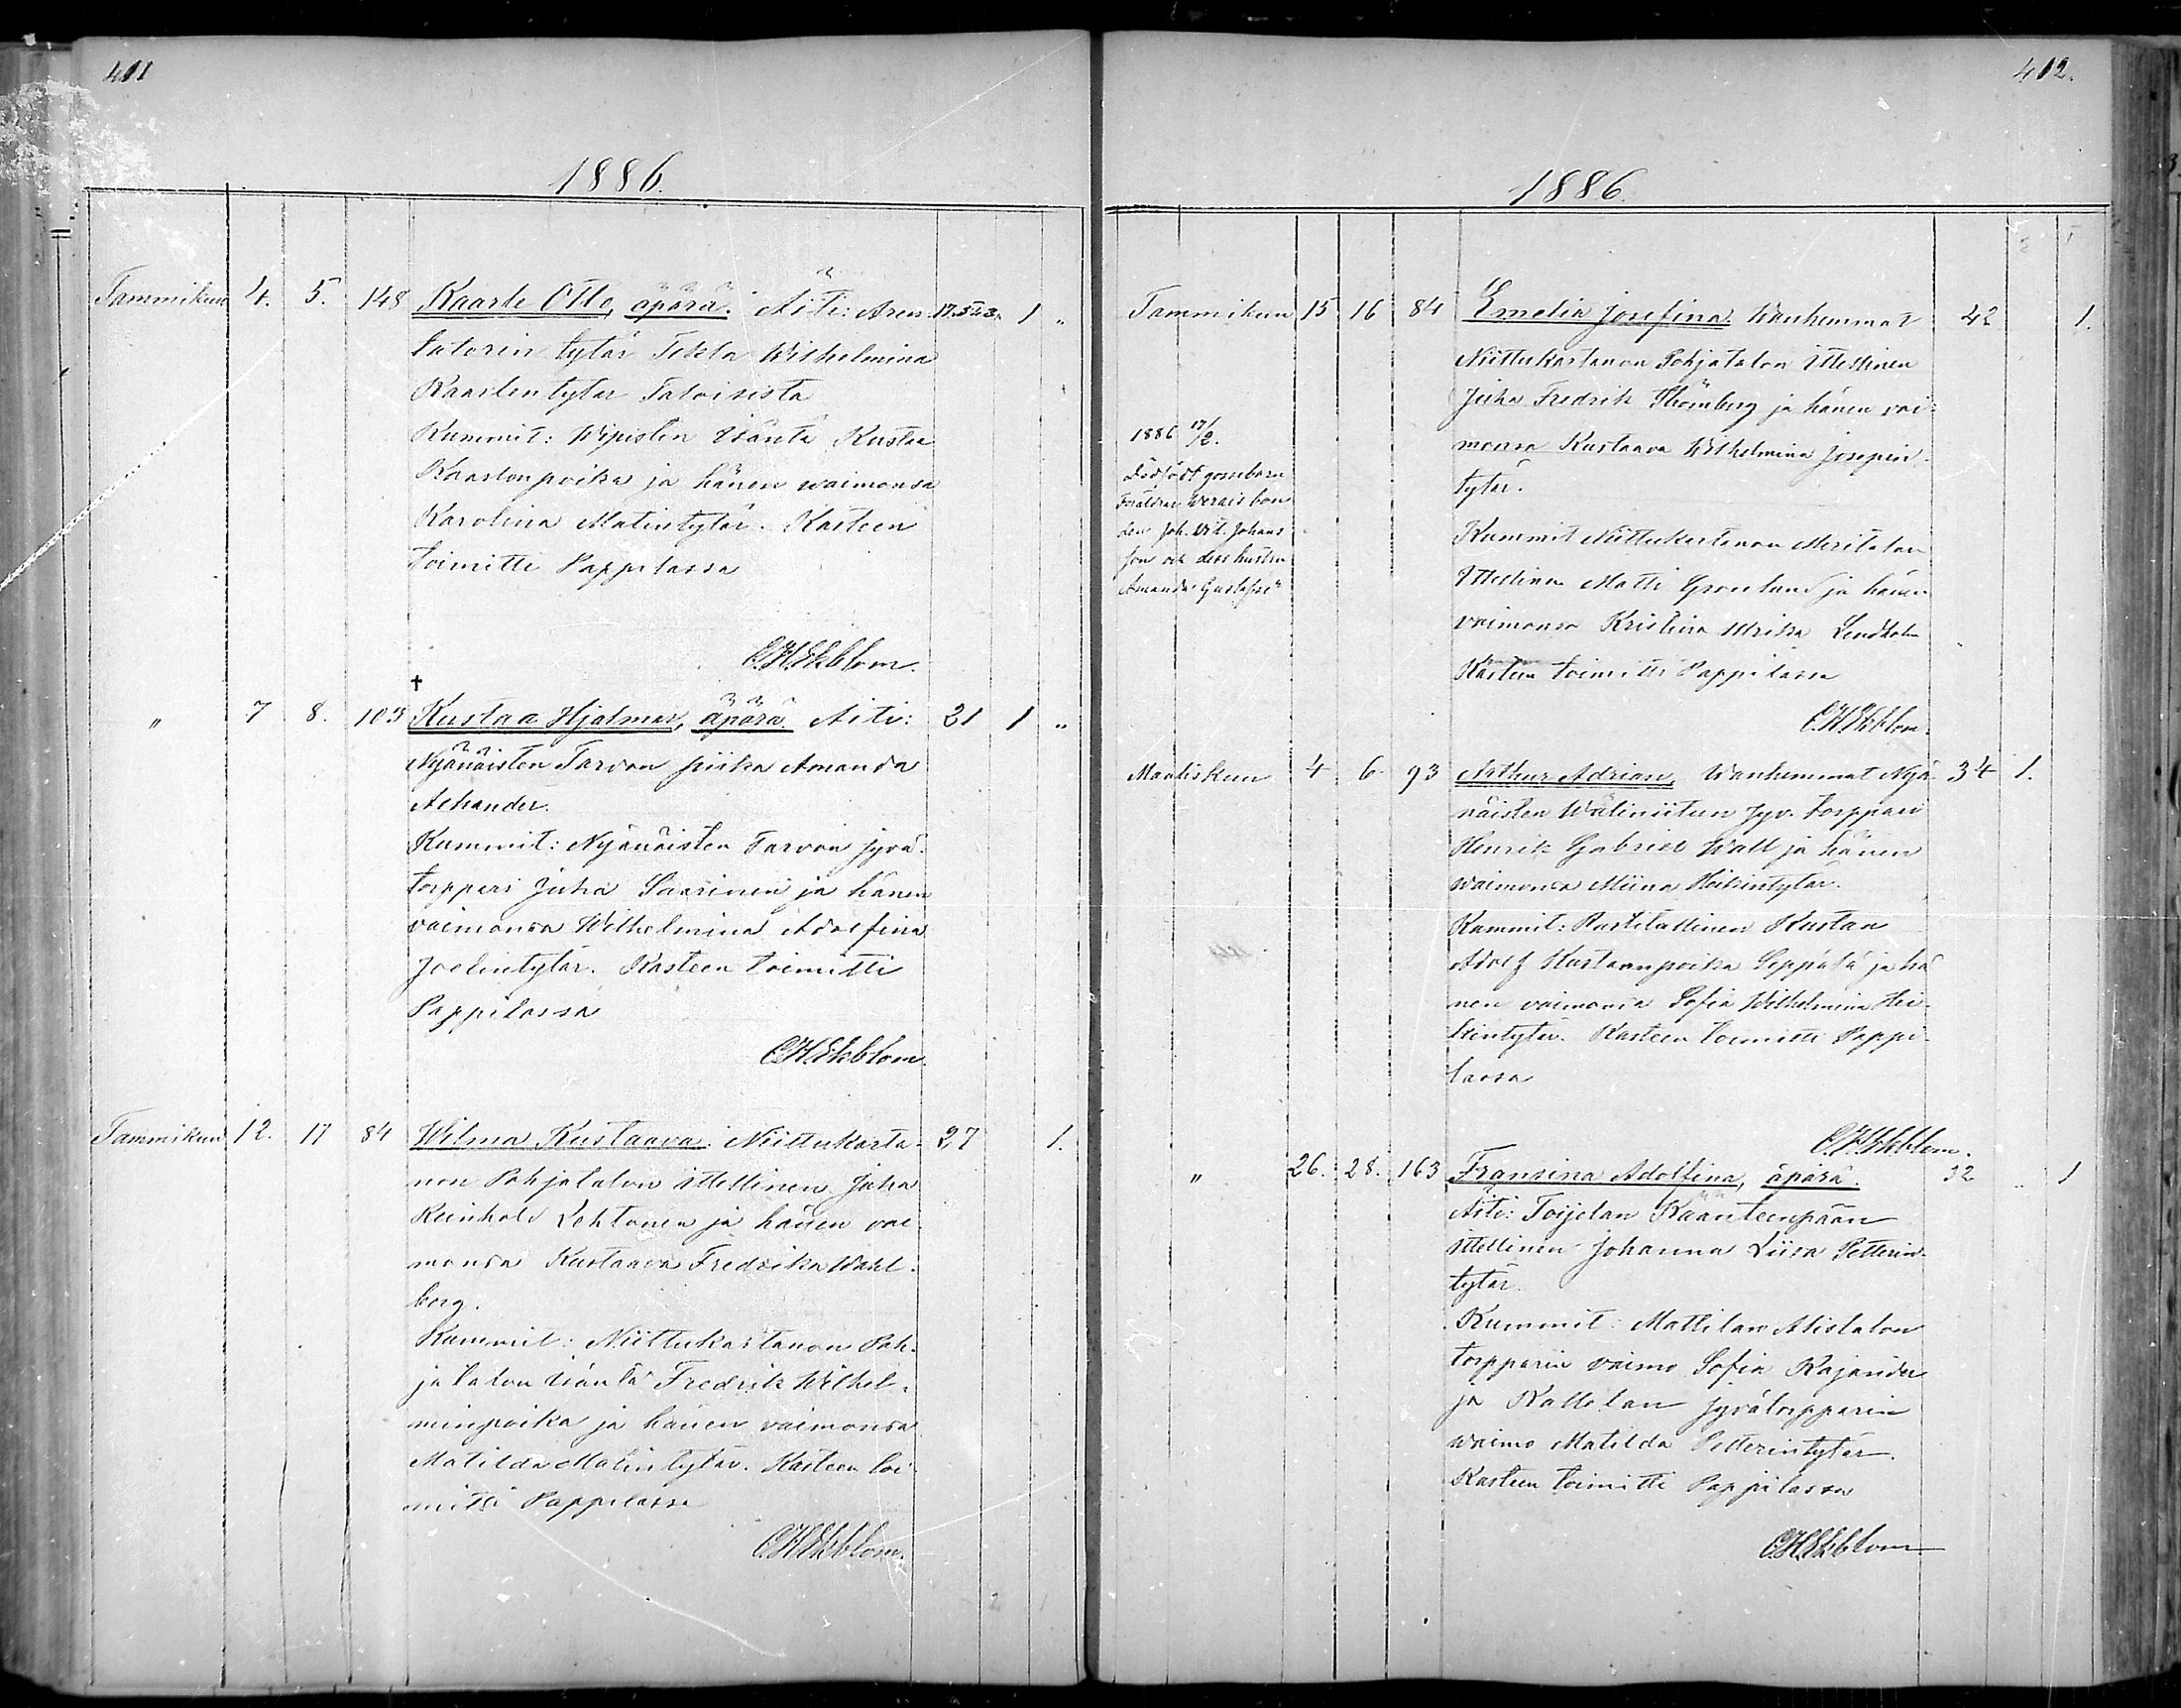 411
1886.
Tammikun 4. 5. 148 Kaarle Otto, äpärä. Äiti: Aren- 17.5/12 3. 1 "
tatorin tytär Tekla Wilhelmina
Kaarlentytär Tatoisista
Kummit: Wipislen Isäntä Kustaa
Kaarlonpoika ja hänen waimonsa
Karolina Matintytär. Kasteen
toimitti Pappilassa
C.H.Ekblom.
†
" 7 8. 103 Kustaa Hjalmar, äpärä. Äiti: 21 1 "
Njänäisten Tarvon piika Amanda
Achander.
Kummit: Njänäisten Tarvon jyvä-
torppari Juha Saarinen ja hänen
vaimonsa Wilhelmina Adolfina
Joelintytär. Kasteen toimitti
Pappilassa
C.H.Ekblom.
Tammikun 12. 17 84 Wilma Kustaava. Niittukarta- 27 1.
non Pohjatalon ittellinen Juha
Reinhold Lehtonen ja hänen vai-
monsa Kustaava Fredrika Wahl-
borg.
Kummit: Niittukartanon Poh-
jatalon isäntä Fredrik Wilhel-
minpoika ja hänen vaimonsa
Matilda Matintytär. Kasteen toi-
mitti Pappilassa
C.H.Ekblom.
412.
1886.
Tammikun 15 16 84 Emelia Josefina. Wanhemmat 42 1.
Niittukartanon Pohjatalon Ittellinen
Juha Fredrik Thömberg ja hänen vai-
monsa Kustaava Wilhelmina Josepin-
tytär.
Kummit Niittukartanon Meritalon
Ittellinen Matti Grönlund ja hänen
vaimonsa Kristina Ulrika Lindholm
Kasteen toimitti Pappilassa
C.H.Ekblom.
1886 17/2.
Dödfödt gossebarn
Föräldrar Werais bon
den Joh. Vil. Johans
son och dess hustru
Amanda Gustafsd:r
Maaliskun 4 6 93 Arthur Adrian, Wanhemmat Njä- 34 1.
näisten Wäliniitun Jyv. torppari
Henrik Gabriel Wall ja hänen
waimonsa Miina Heikintytär.
Kummit: Rustitallinen Kustaa
Adolf Kustaanpoika Seppälä ja hä
nen vaimonsa Sofia Wilhelmina Hei-
kintytär. Kasteen toimitti Pappi-
lassa
C.H.Ekblom.
" 26. 28. 163 Fransina Adolfina, äpärä. 32 " 1
Äiti: Toijolan Kaanteenpään
ittellinen Johanna Liisa Petterin-
tytär.
Kummit: Mattilan Alistalon
torpparin vaimo Sofia Rajander
ja Kattelan jyvätorpparin
waimo Matilda Petterintytär.
Kasteen toimitti Pappilassa
C.H.Ekblom